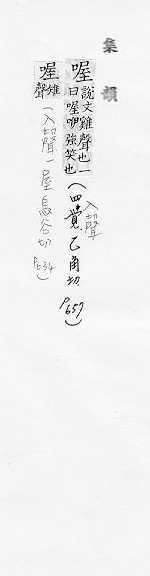 集韻
喔說文雞聲也一曰喔咿強笑也（入聲四覺乙角切P657）
喔雉聲（入聲一屋烏谷切P634）